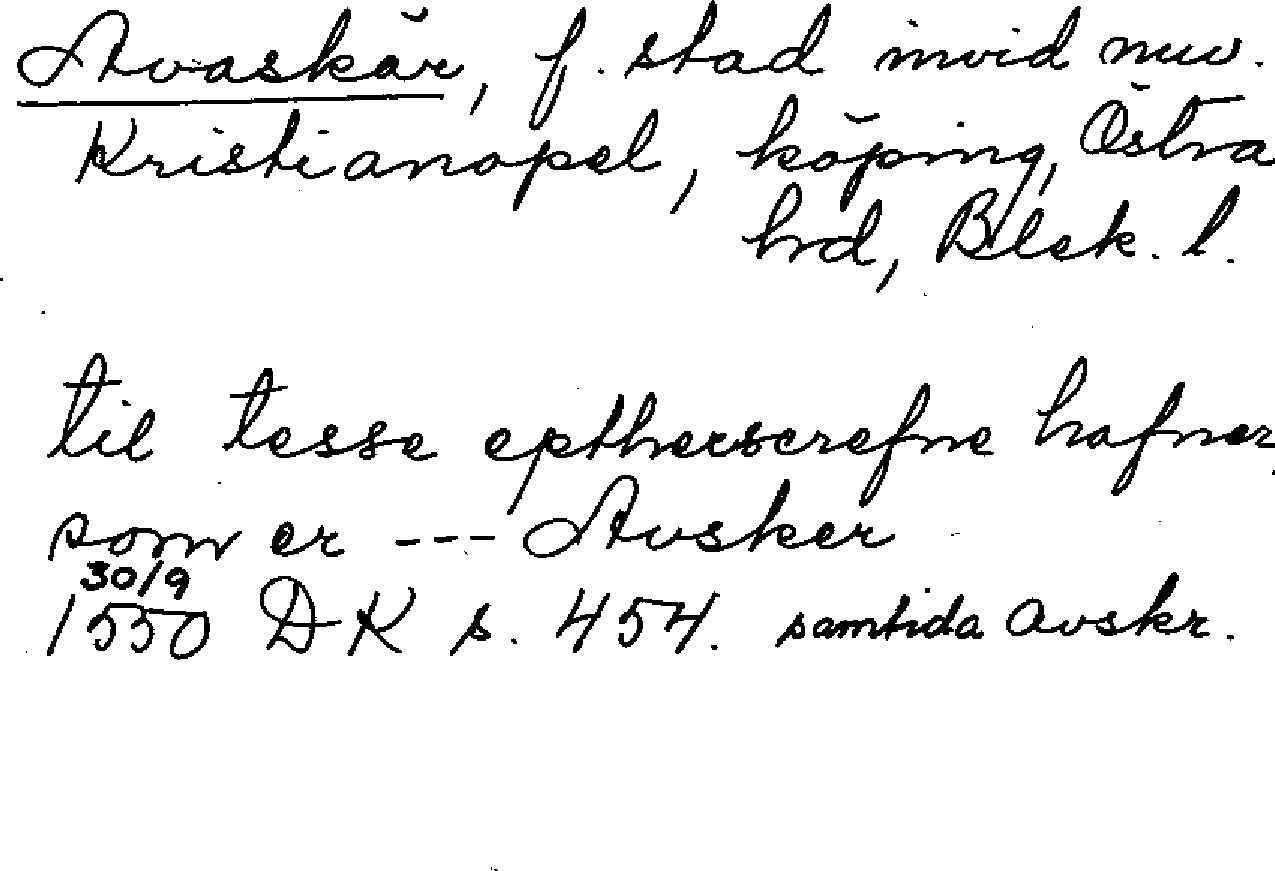 Avaskär, f. stad invid nuv.
Kristianopel, köping, Östra
hrd, Blek. l.
til tesse eptherscrefne hafner
som er --- Avsker
30/9
1550 DK s. 454. samtida avskr.